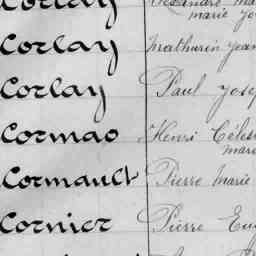 Corlay Alexandre Ma
marie Jo
Corlay Mathurin Jean
Corlay Paul Jose
Cormao Henri Céles
mari
Cormault Pierre Marie
Cornier Pierre Eu